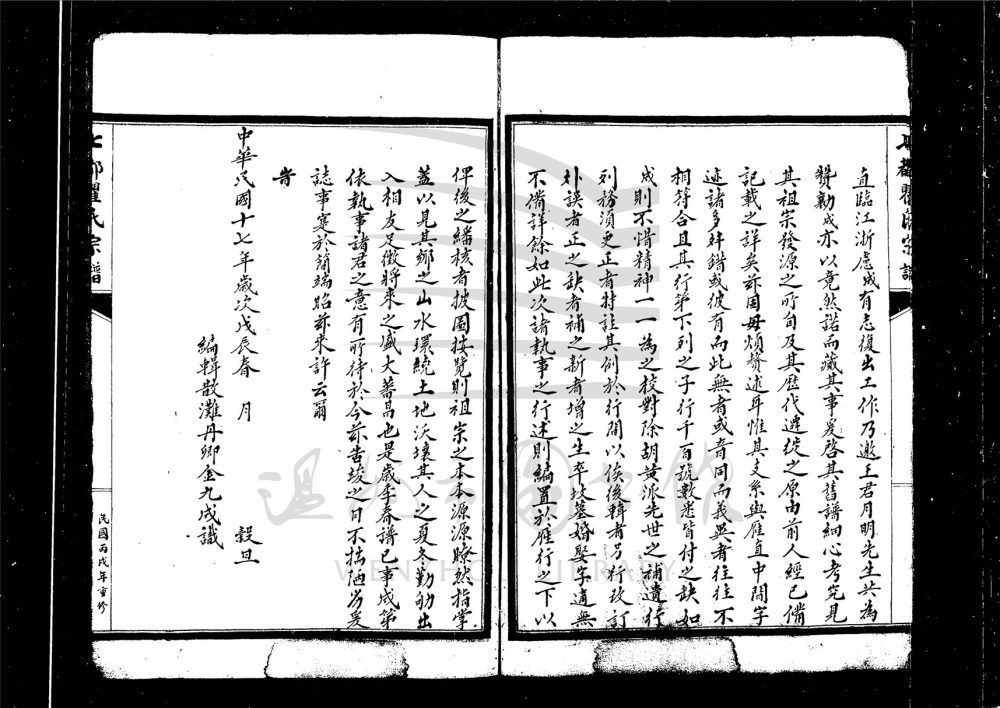 直臨江浙慮成有志復出工作乃邀王君月明先生共為
贊勷成亦以竟然諾而藏其事爰啓其舊譜細心考究見
其祖宗發源之所自及其歷代遷徙之原由前人經已備
記載之詳矣茲固毋煩贅述耳惟其支系與雁直中間字
迹諸多舛錯或彼有而此無者或音同而義異者往往不
相符合且其行第下列之子行千百號數悉皆付之缺如
成則不惜精神一一為之校對除胡黃派先世之補遺行
列務須更正者特註其例於行間以俟後輯者另行改訂
外誤者正之缺者補之新者增之生卒坟墓婚娶字適無
不備詳餘如此次諸執事之行述則編置於雁行之下以
俾後之繙核者披圖披覽則祖宗之本本源源瞭然指掌
蓋以見其鄉之山水環繞土地沃壤其人之夏冬勤劬出
入相友足徵將來之盛大蕃昌也是歲季春譜已事成第
依執事諸君之意有所待於今茲告竣之日不揣陋劣爰
誌事寔於簡端昭茲來許云爾
旹
中華民國十七年歲次戊辰春 月 穀旦
編輯散灘丹卿金九成識
民國丙戌年重修
七都瞿氏宗譜
温州市圖書館
WENZHOU LIBRARY